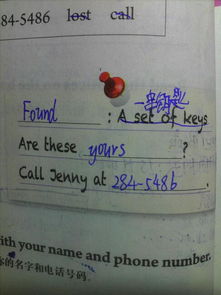 84-5486 lost call
一串钥匙
Found : A set of keys
Are these yours ?
Call Jenny at 284-5486.
ith your name and phone number.
你的名字和电话号码.